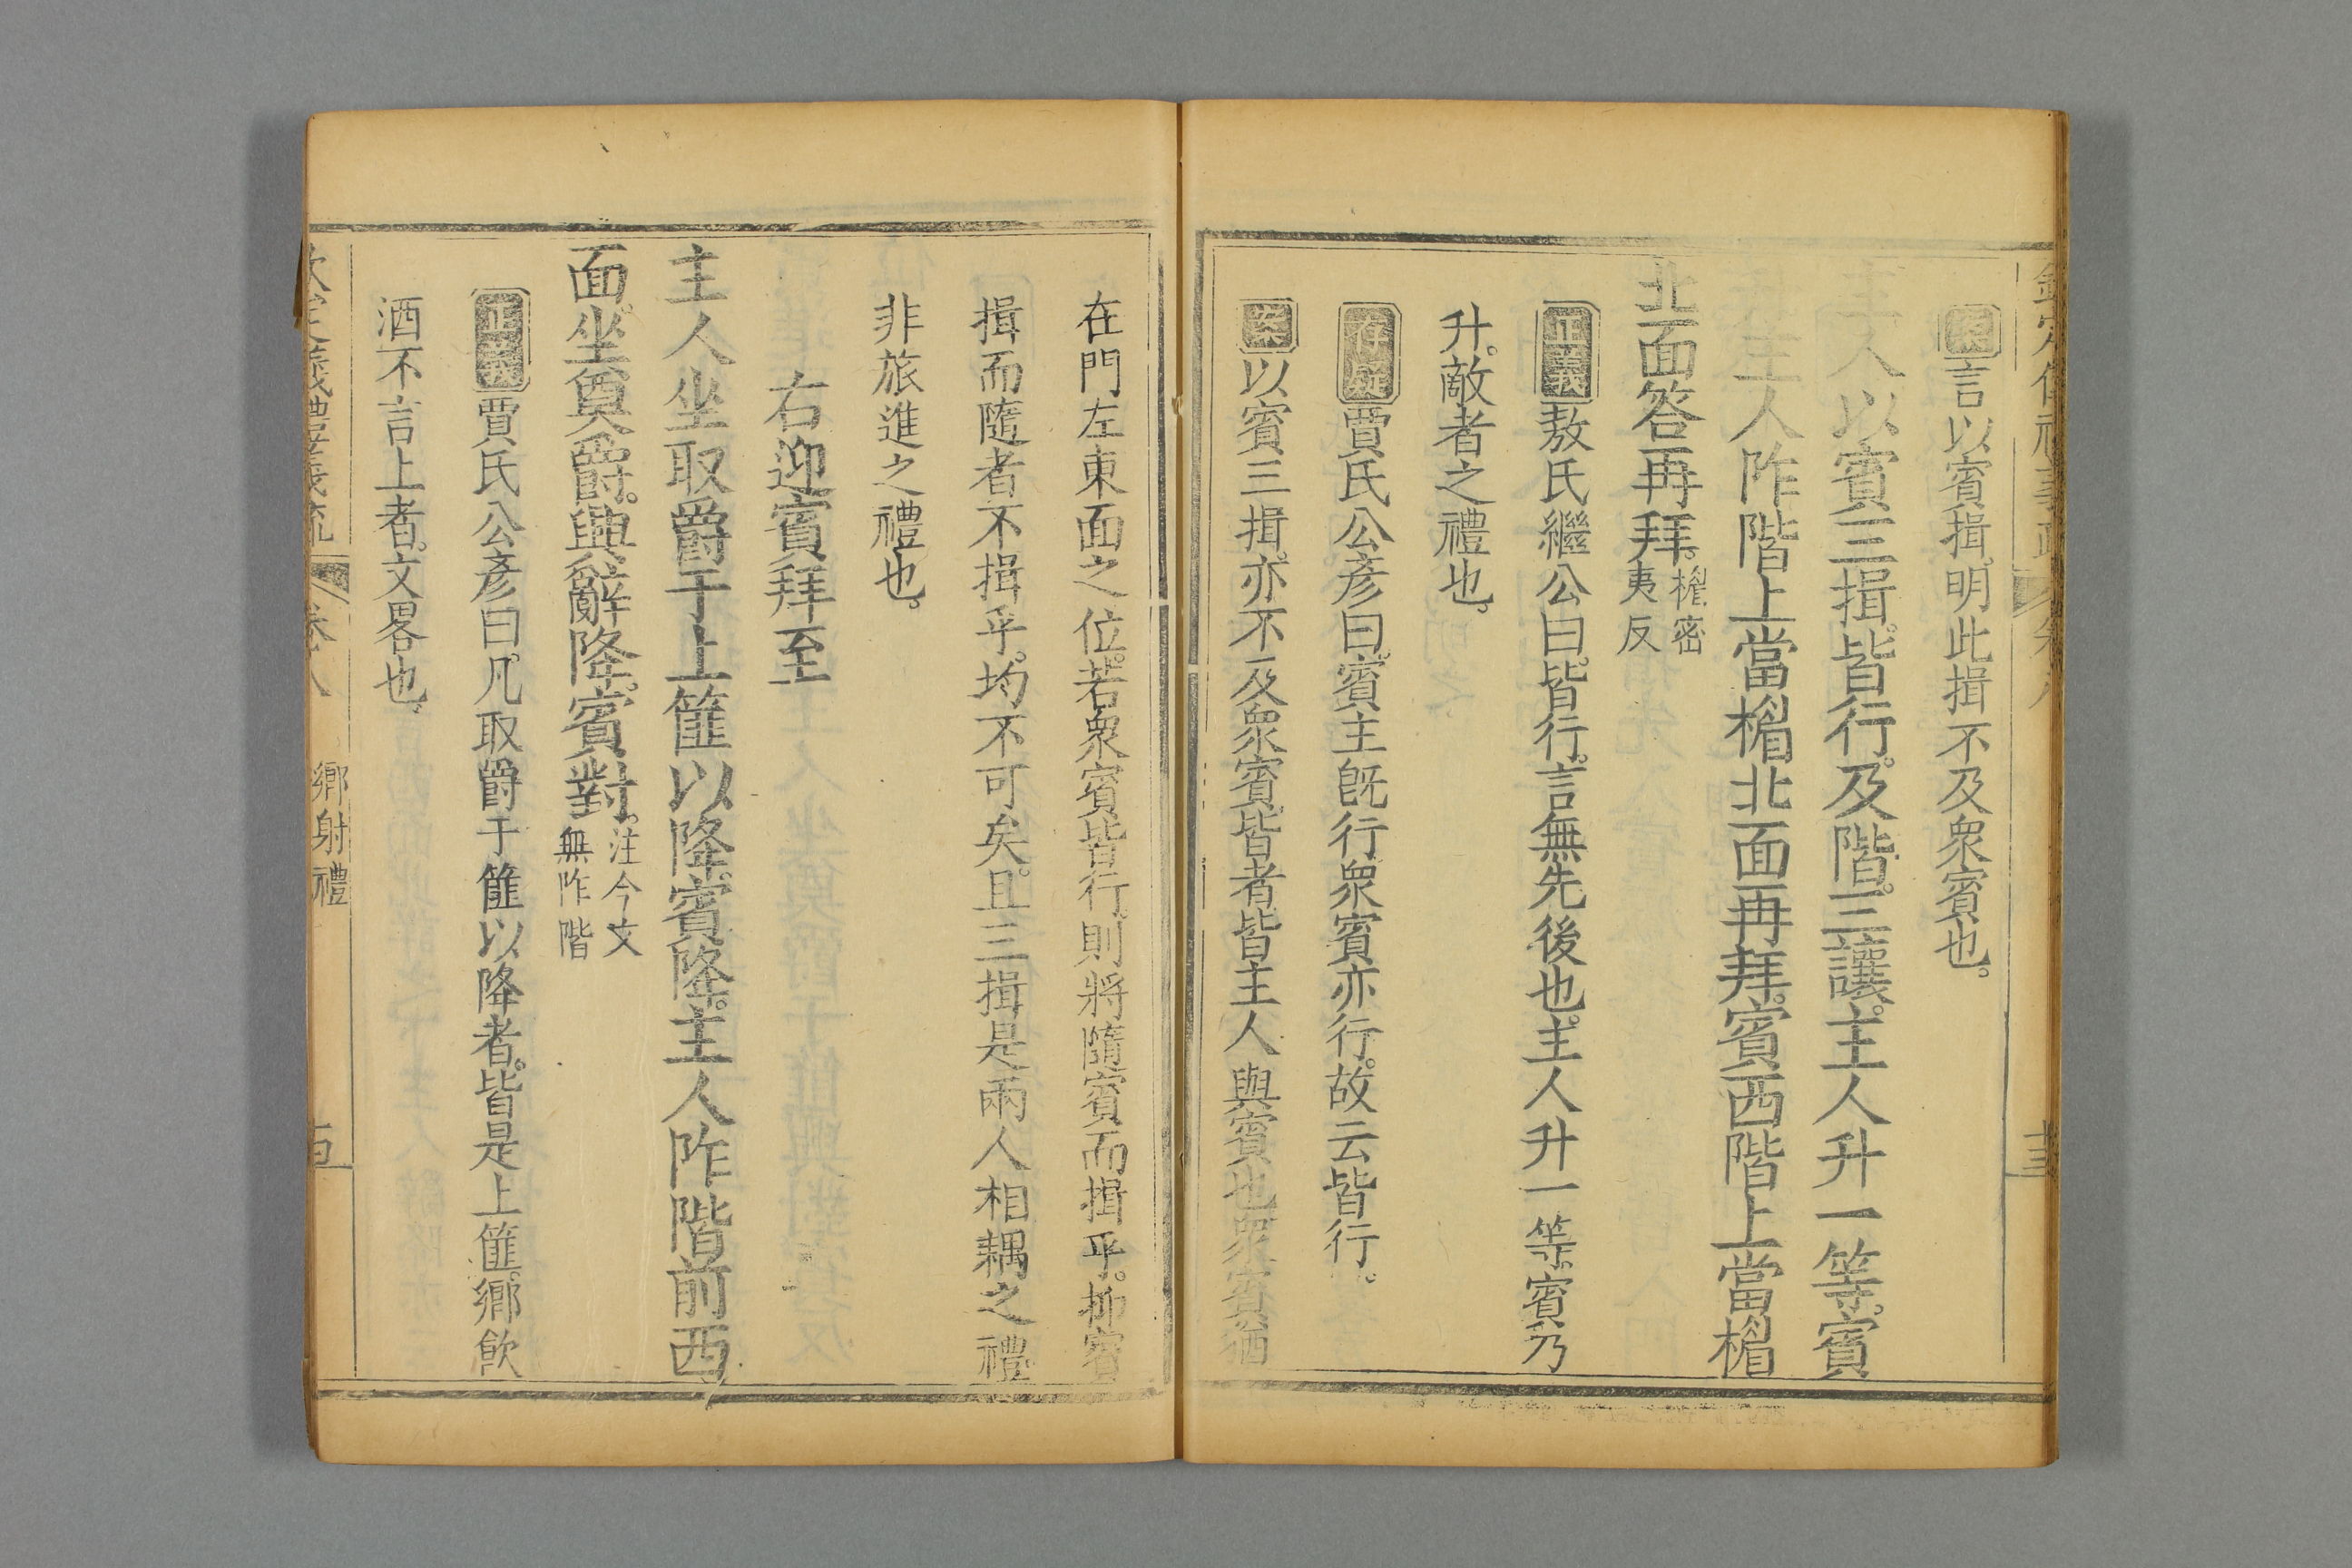 欽定儀禮義疏 卷八 十三
案言以賓揖明此揖不及衆賓也。
主人以賓三揖。皆行。及階。三讓。主人升一等。賓
主人阼階上當楣北面再拜。賓西階上當楣
北面答再拜。楣密
夷反
正義敖氏繼公曰。皆行。言無先後也。主人升一等。賓乃
升。敵者之禮也。
存疑賈氏公彥曰。賓主旣行衆賓亦行。故云皆行。
案以賓三揖。亦不及衆賓。皆者。皆主人與賓也。衆賓猶
在門左東面之位。若衆賓皆行。則將隨賓而揖乎。抑賓
揖而隨者不揖乎。均不可矣。且三揖是兩人相耦之禮
非旅進之禮也。
右迎賓拜至
主人坐取爵于上篚以降。賓降。主人阼階前西
面。坐奠爵。興辭降。賓對。注今文
無阼階
正義賈氏公彥曰。凡取爵于篚以降者。皆是上篚。鄉飲
酒不言上者。文畧也。
欽定儀禮義疏 卷八 鄉射禮